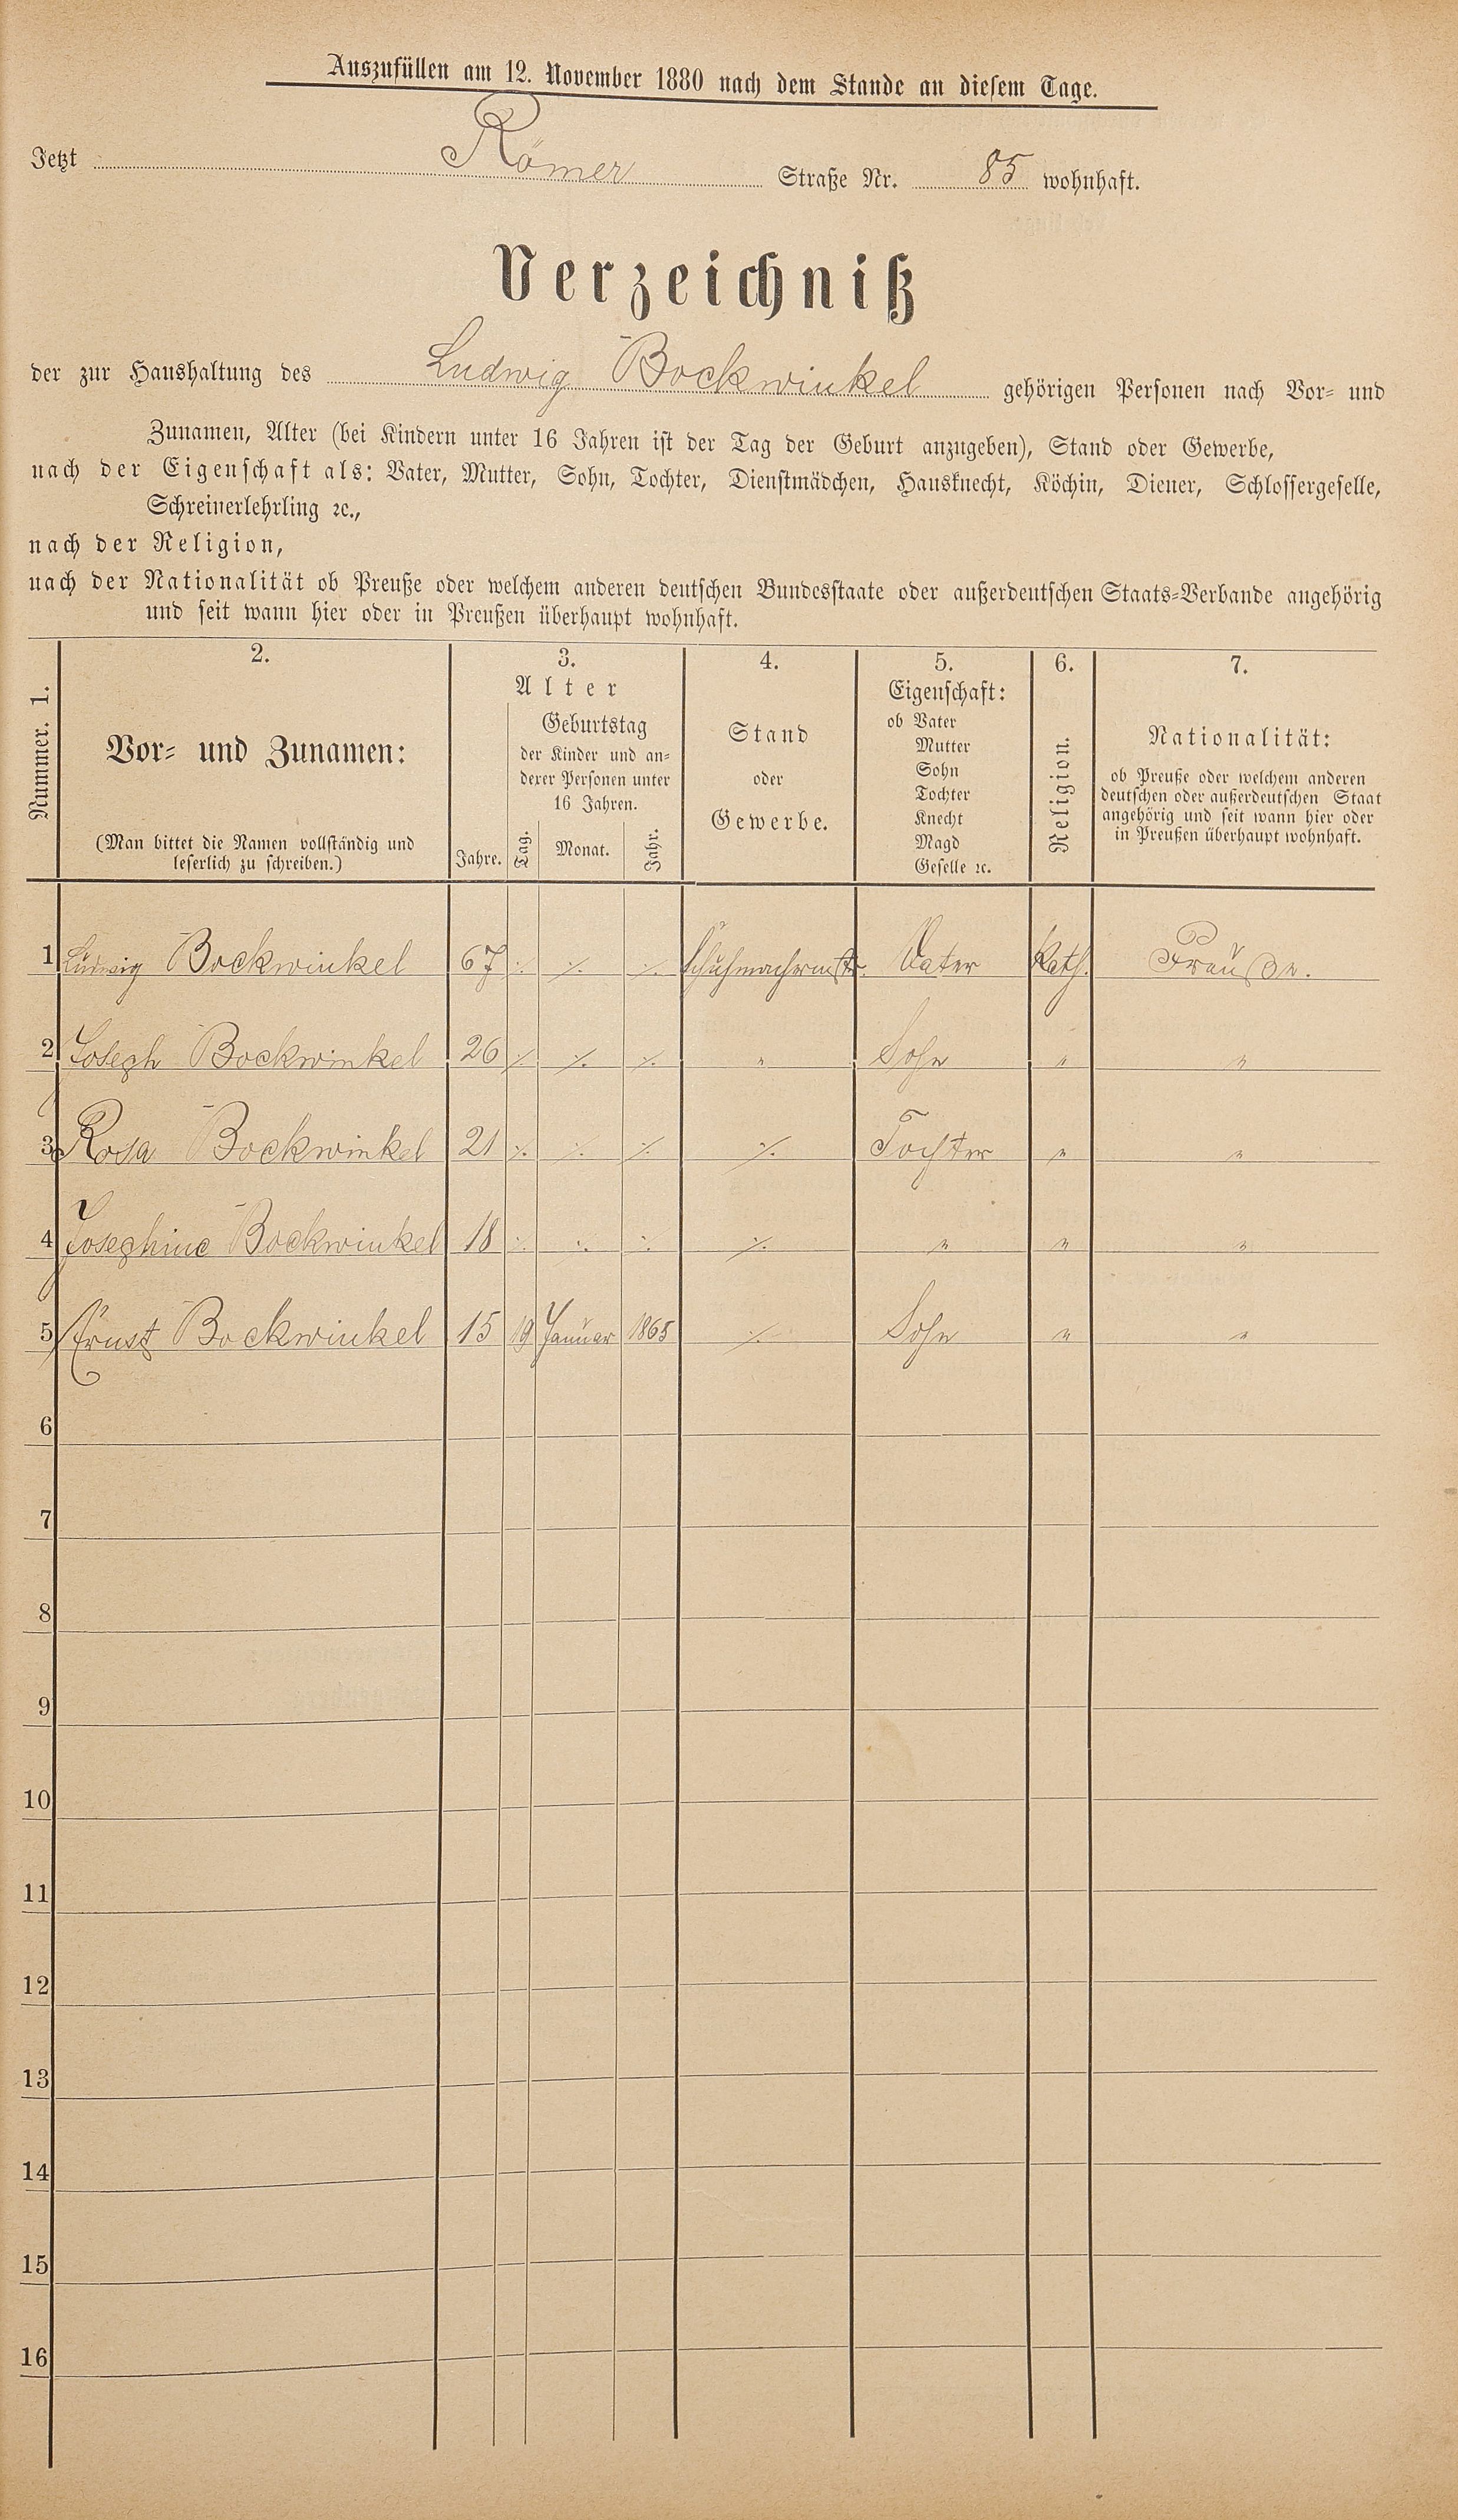 Auszufüllen am 12. November 1880 nach dem Stande an diesem Tage.
Jetzt Römer Straße Nr. 85 wohnhaft.
Verzeichniß
der zur Haushaltung des Ludwig Bockwinkel gehörigen Personen nach Vor- und
Zunamen, Alter (bei Kindern unter 16 Jahren ist der Tag der Geburt anzugeben), Stand oder Gewerbe,
nach der Eigenschaft als: Vater, Mutter, Sohn, Tochter, Dienstmädchen, Hausknecht, Köchin, Diener, Schlossergeselle,
Schreinerlehrling ꝛc.,
nach der Religion,
nach der Nationalität ob Preuße oder welchem anderen deutschen Bundesstaate oder außerdeutschen Staats-Verbande angehörig
und seit wann hier oder in Preußen überhaupt wohnhaft.
Nummer. 1.
2.
Vor- und Zunamen:
(Man bittet die Namen vollständig und
leserlich zu schreiben.)
3.
Alter
Jahre.
Geburtstag
der Kinder und an-
derer Personen unter
16 Jahren.
Tag. Monat. Jahr.
4.
Stand
oder
Gewerbe.
5.
Eigenschaft:
ob Vater
Mutter
Sohn
Tochter
Knecht
Magd
Geselle ꝛc.
6.
Religion.
7.
Nationalität:
ob Preuße oder welchem anderen
deutschen oder außerdeutschen Staat
angehörig und seit wann hier oder
in Preußen überhaupt wohnhaft.
1 Ludwig Bockwinkel 67 ./. ./. ./. Schuhmachermstr. Vater Kath. Preuße.
2 Joseph Bockwinkel 26 ./. ./. ./. " Sohn " "
3 Rosa Bockwinkel 21 ./. ./. ./. ./. Tochter " "
4 Josephine Bockwinkel 18 ./. ./. ./. ./. " " "
5 Ernst Bockwinkel 15 19 Januar 1865 ./. Sohn " "
6
7
8
9
10
11
12
13
14
15
16